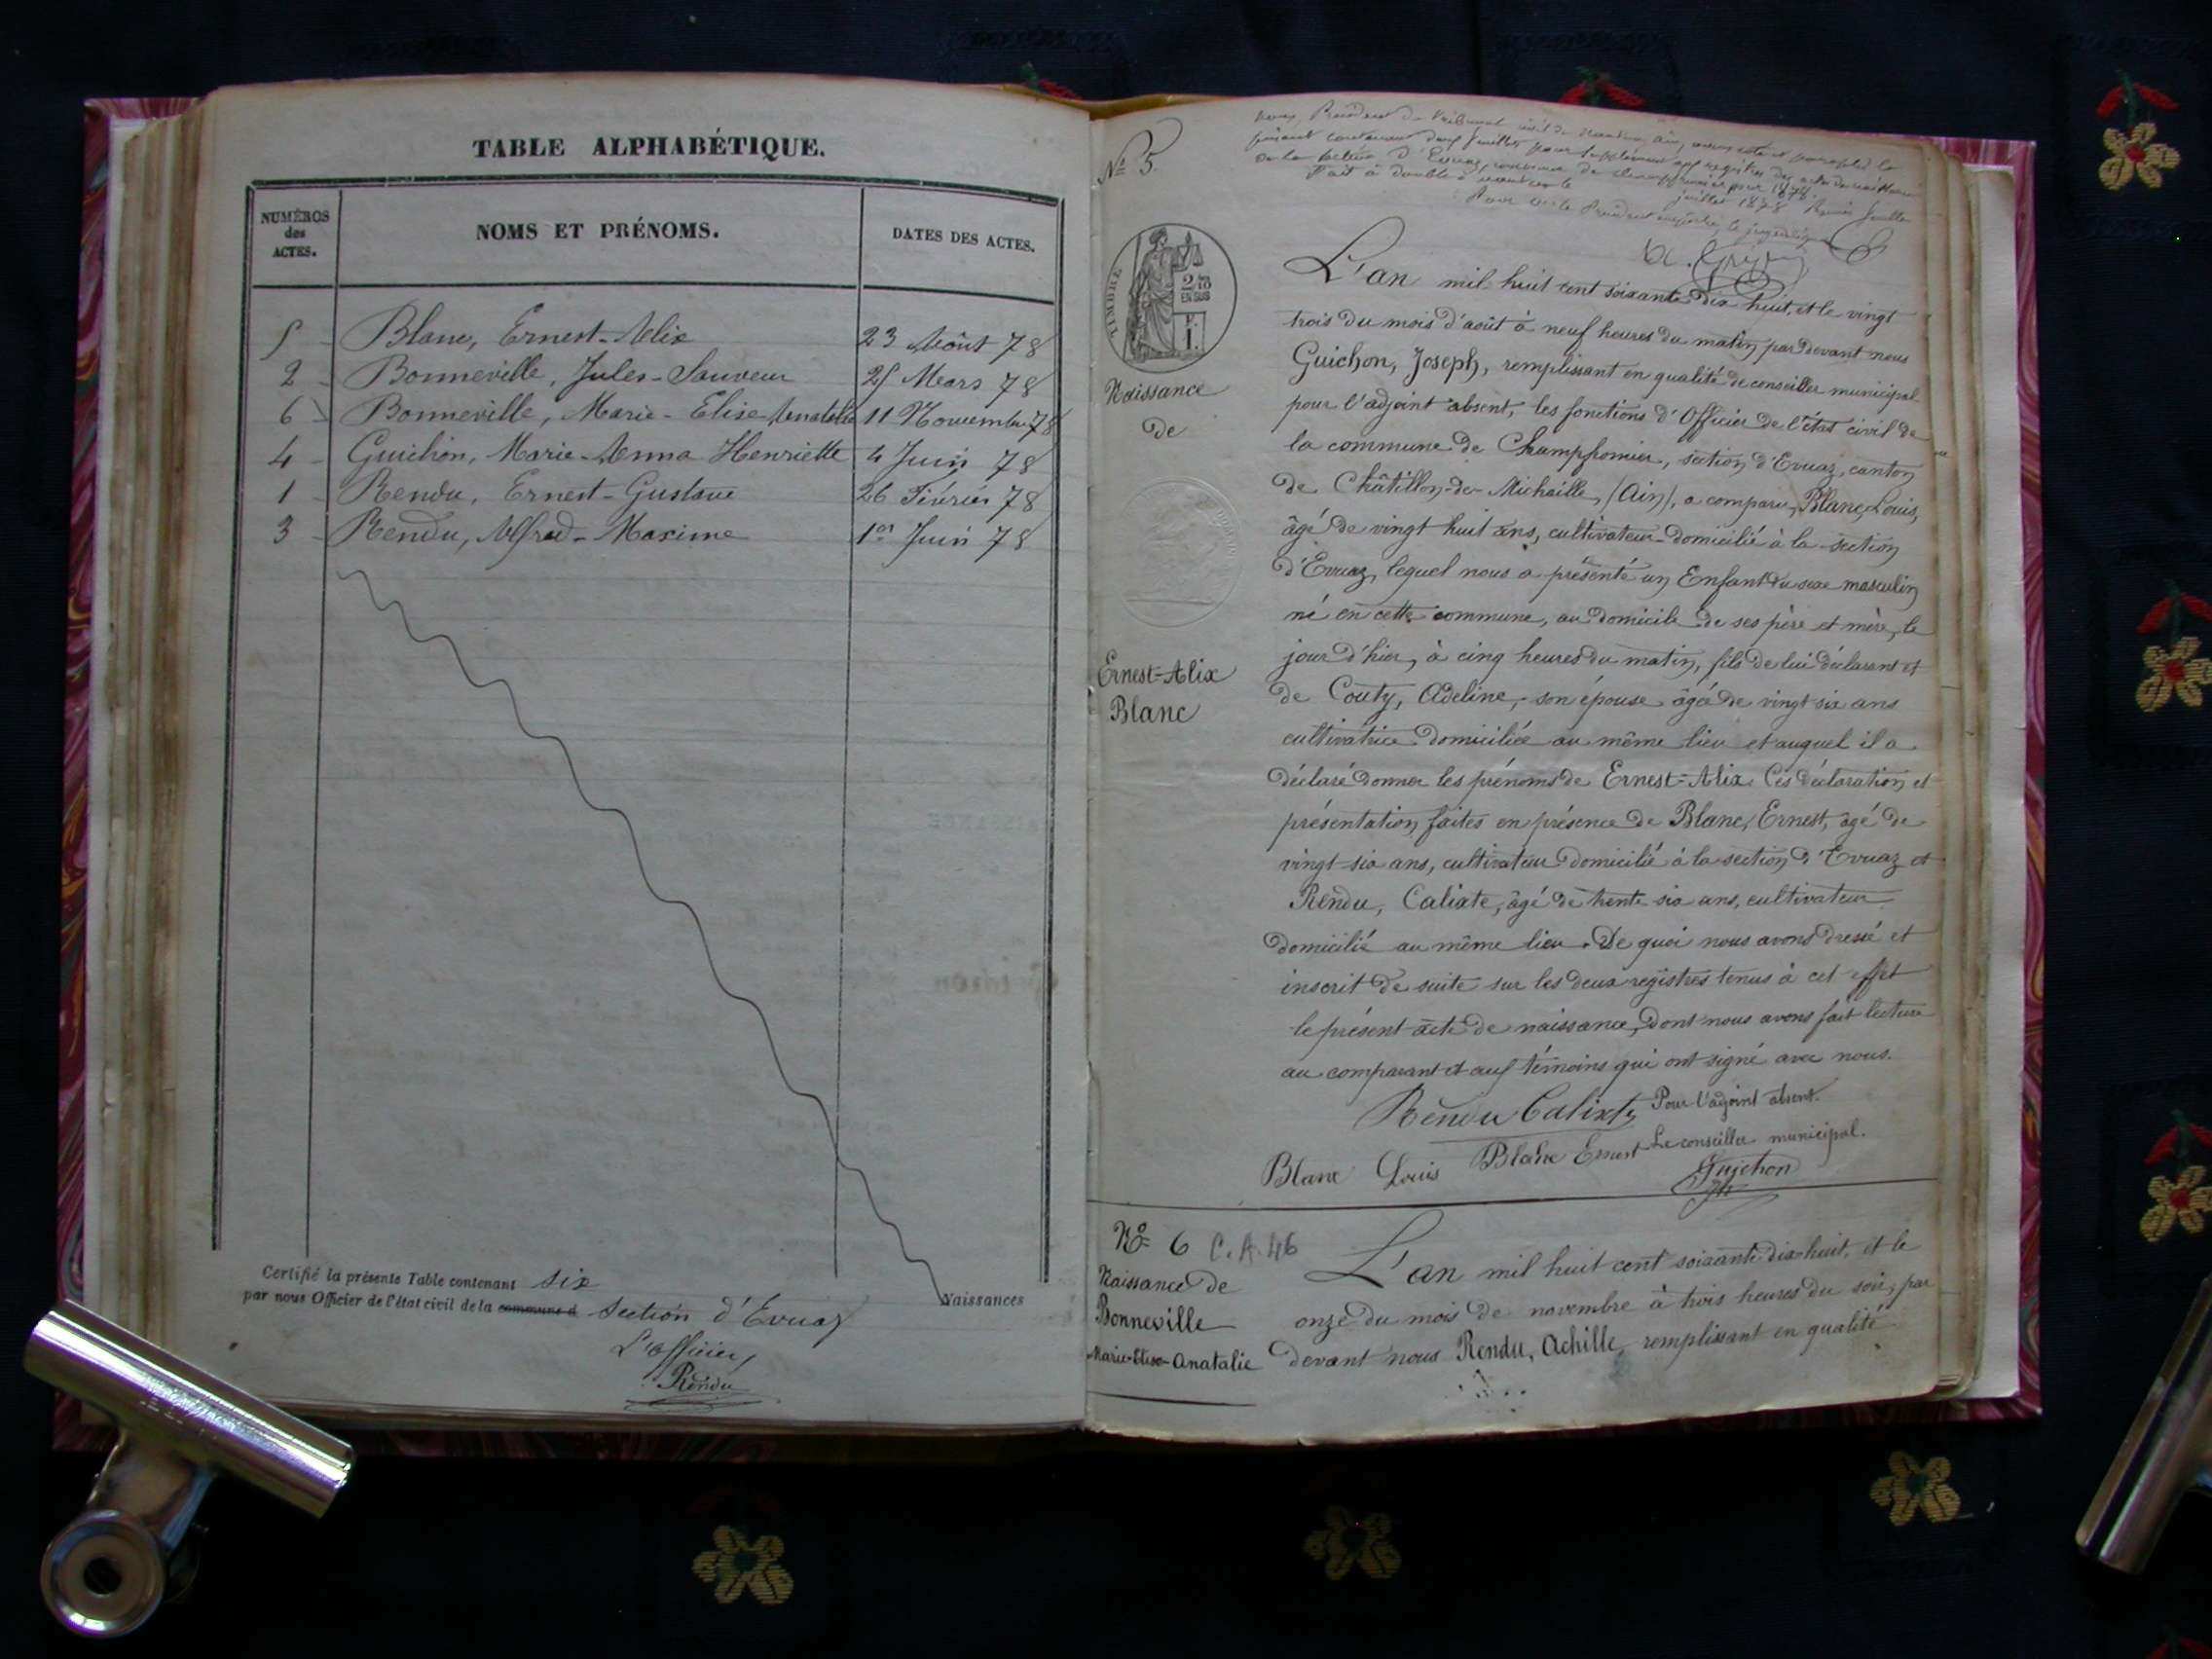 TABLE ALPHABÉTIQUE.
NUMÉROS
des
ACTES.
NOMS ET PRÉNOMS.
DATES DES ACTES.
5 Blanc, Ernest-Alix 23 Août 78
2 Bonneville, Jules-Sauveur 25 Mars 78
6 Bonneville, Marie-Elise-Anatalie 11 Novembre 78
4 Guichon, Marie-Anna Henriette 4 Juin 78
1 Rendu, Ernest-Gustave 26 Février 78
3 Rendu, Alfred-Maxime 1er Juin 78
Certifié la présente Table contenant six
Naissances
par nous Officier de l'état civil de la commune d section d'Evuaz
L'officier,
Rendu
Nous, Président du tribunal civil de Nantua, Ain, avons coté et paraphé le
présent contenant deux feuilles pour supplément aux registres des actes de naissances
de la section d'Evuaz, commune de Champfromier pour 1878.
Fait à double à Nantua le juillet 1878
Nº 5.
TIMBRE
2/10
EN SUS
F.
1.
Naissance
de
Ernest-Alix
Blanc
L'an mil huit cent soixante dix huit, et le vingt
trois du mois d'août à neuf heures du matin, par devant nous
Guichon, Joseph, remplissant en qualité de conseiller municipal
pour l'adjoint absent, les fonctions d'Officier de l'état civil de
la commune de Champfromier, section d'Evuaz, canton
de Châtillon-de-Michaille, (Ain), a comparu, Blanc, Louis,
âgé de vingt huit ans, cultivateur domicilié à la section
d'Evuaz, lequel nous a présenté un Enfant du sexe masculin
né en cette commune, au domicile de ses père et mère, le
jour d'hier, à cinq heures du matin, fils de lui déclarant et
de Couty, Adeline, son épouse âgée de vingt six ans
cultivatrice domiciliée au même lieu et auquel il a
déclaré donner les prénoms de Ernest-Alix. Ces déclaration et
présentation faites en présence de Blanc, Ernest, âgé de
vingt-six ans, cultivateur domicilié à la section d'Evuaz et
Rendu, Calixte, âgé de trente six ans, cultivateur
domicilié au même lieu. De quoi nous avons dressé et
inscrit de suite sur les deux registres tenus à cet effet
le présent acte de naissance, dont nous avons fait lecture
au comparant et aux témoins qui ont signé avec nous.
Rendu Calixte Pour l'adjoint absent.
Blanc Louis Blanc Ernest Le conseiller municipal.
Guichon
Nº 6 C.A.46
Naissance de
Bonneville
Marie-Elise-Anatalie
L'an mil huit cent soixante-dix-huit, et le
onze du mois de novembre à trois heures du soir, par
devant nous Rendu, Achille, remplissant en qualité